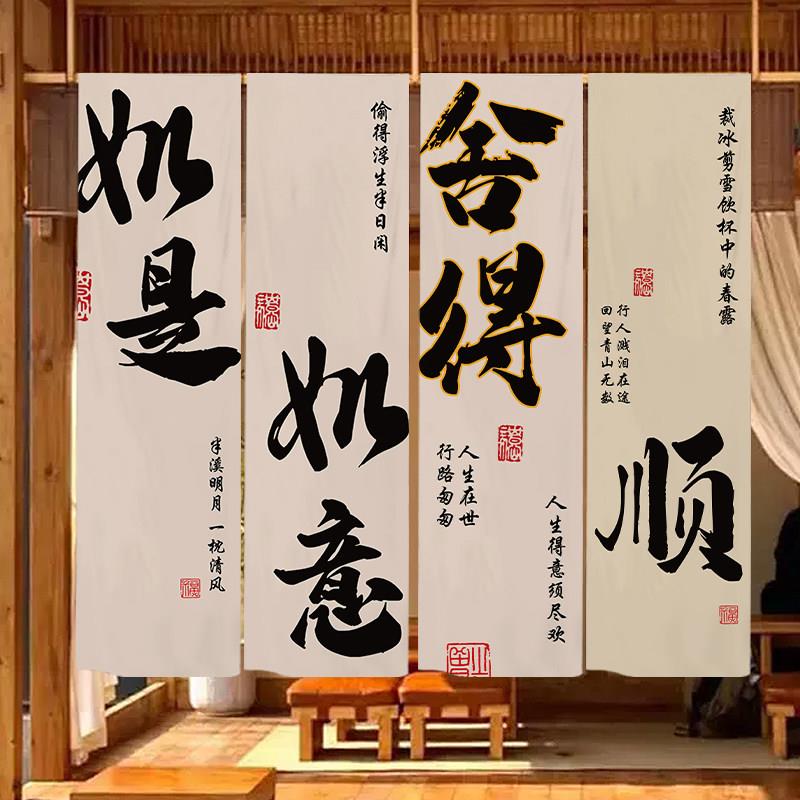 如是
半溪明月 一枕清风
偷得浮生半日闲
如意
舍得
人生在世
行路匆匆
人生得意须尽欢
裁冰剪雪饮杯中的春露
行人溅泪在途
回望青山无数
顺